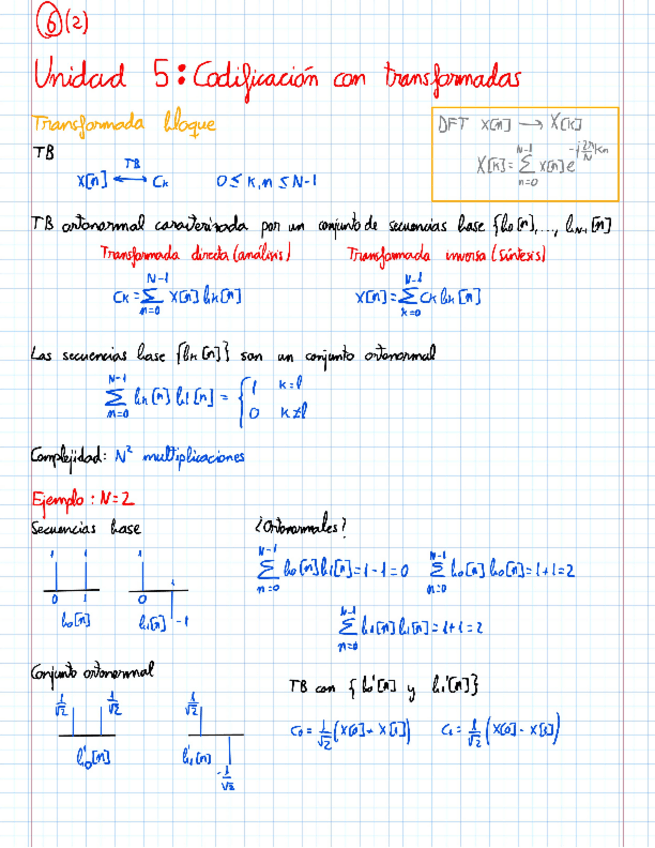 6 (2)
Unidad 5: Codificación con transformadas
Transformada bloque
DFT x[n] → X[k]
X[k] = Σ_{n=0}^{N-1} x[n] e^{-j 2π/N kn}
TB
x[n] ←TB→ Ck 0 ≤ k,n ≤ N-1
TB ortonormal caracterizada por un conjunto de secuencias base {b0[n], ..., bN-1[n]}
Transformada directa (análisis) Transformada inversa (síntesis)
Ck = Σ_{n=0}^{N-1} x[n] bk[n] x[n] = Σ_{k=0}^{N-1} Ck bk[n]
Las secuencias base {bk[n]} son un conjunto ortonormal
Σ_{n=0}^{N-1} bk[n] bl[n] = { 1 k=l
0 k≠l
Complejidad: N² multiplicaciones
Ejemplo: N=2
Secuencias base ¿Ortonormales?
Σ_{n=0}^{N-1} b0[n] b1[n] = 1-1 = 0 Σ_{n=0}^{N-1} b0[n] b0[n] = 1+1 = 2
1 1 1 1
0 1 0
b0[n] b1[n] -1
Σ_{n=0}^{N-1} b1[n] b1[n] = 1+1 = 2
Conjunto ortonormal
TB con {b0'[n] y b1'[n]}
1/√2 1/√2 1/√2
C0 = 1/√2 (x[0] + x[1]) C1 = 1/√2 (x[0] - x[1])
b0'[n] b1'[n] -1/√2